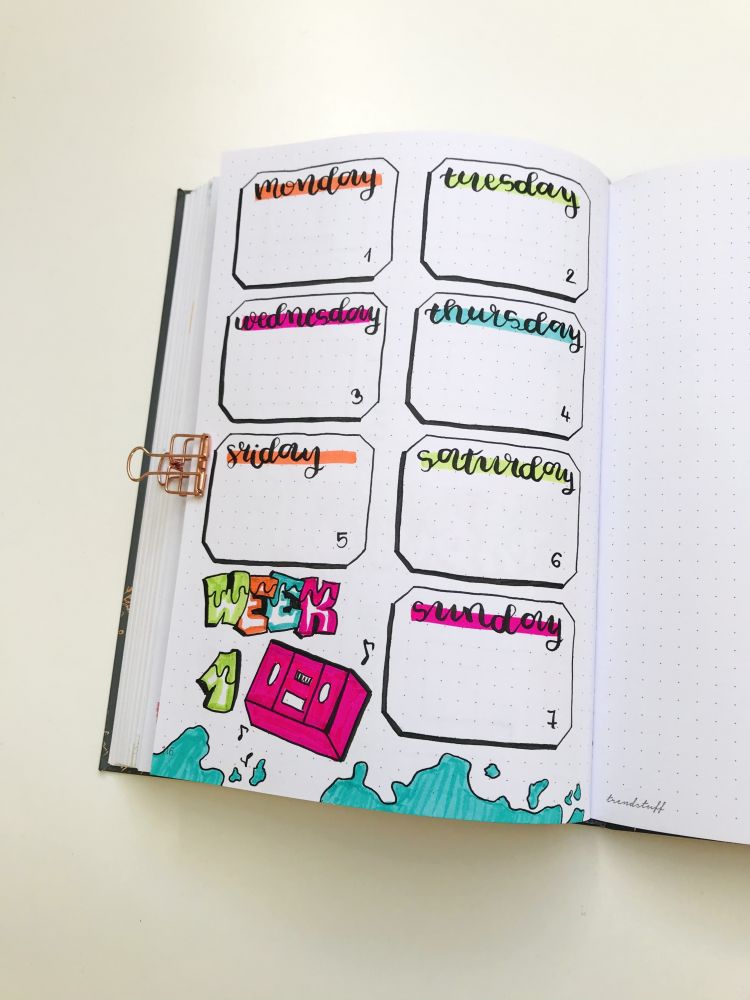 monday
1
tuesday
2
wednesday
3
thursday
4
sriday
5
saturday
6
WEEK
1
sunday
7
trendstuff